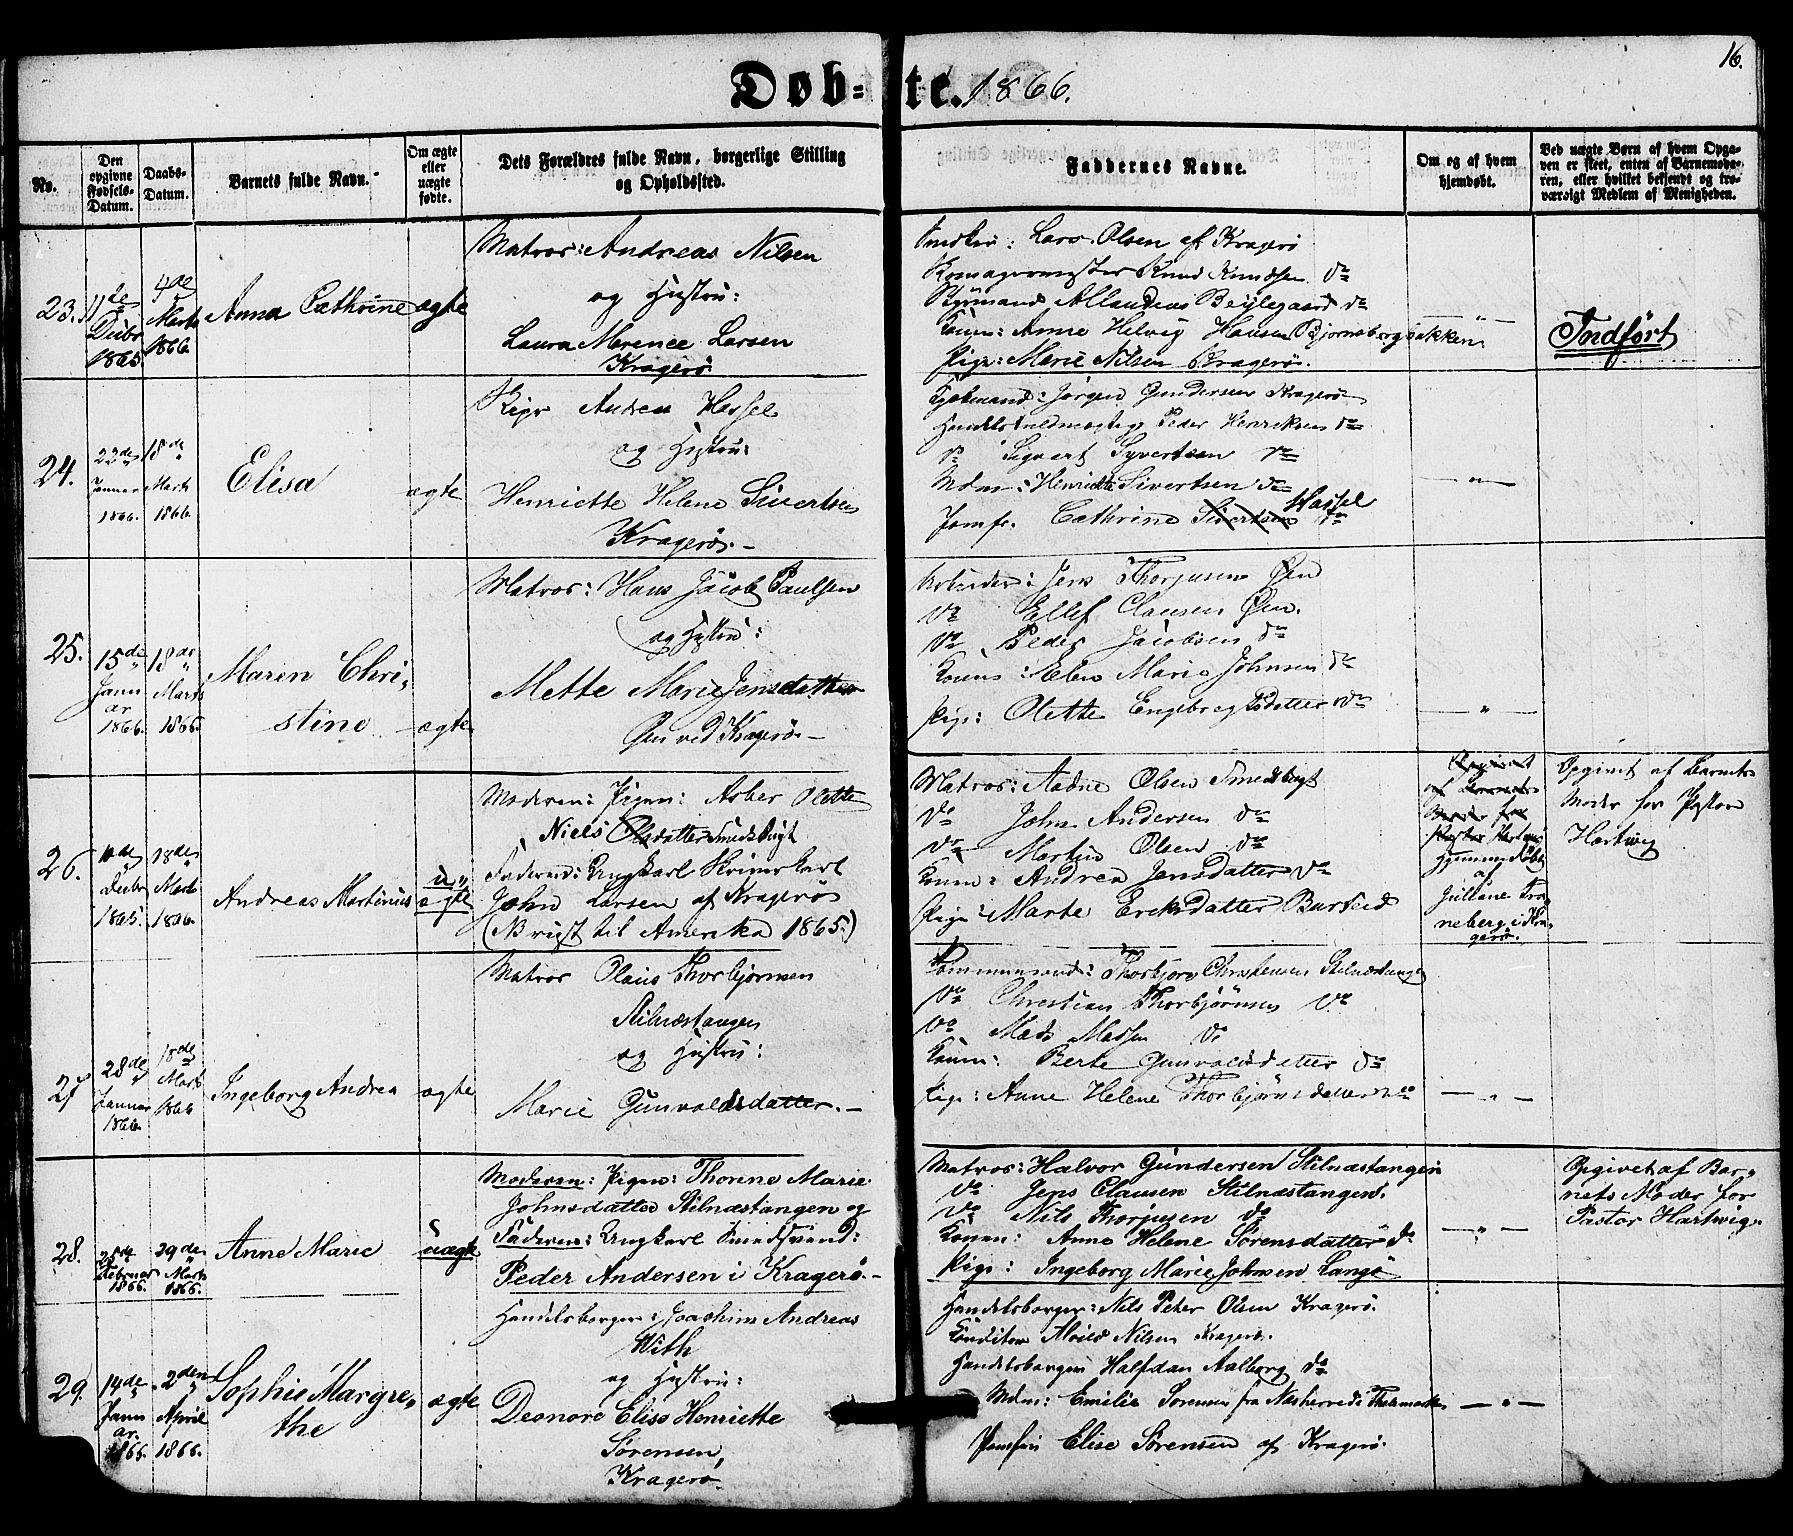 16.
Døb-te. 1866.
No.
Den opgivne Fødsels-Datum.
Daabs-Datum.
Barnets fulde Navn.
Om ægte eller uægte fødte.
Dets Forældres fulde Navn, borgerlige Stilling og Opholdssted.
Faddernes Navne.
Om og af hvem hjemdøbt.
Ved uægte Børn af hvem Opgaven er skeet, enten af Barnemoderen, eller hvilket bekjendt og troværdigt Medlem af Menigheden.
23.
11de
Decbr
1865.
4de
Marts
1866
Anna Cathrine
ægte
Matros: Andreas Nilsen
og Hustru:
Laura Merence Larsen
Kragerø
Lars Olsen af Kragerø
Knud Knudsen do
Anne Helvig Hansen Bjornsbergbakken
Pige: Marie Nilsen Kragerø.
Indført
24.
23de
Januar
1866.
18de
Marts
1866
Elisa
ægte
Andrea Hassel
og Hustru:
Henriette Helene Sivertsen
Kragerø. -
Kjøbmand: Jørgen Gundersen Kragerø
Peder Henriksen do
do Sigvart Syvertsen do
Mdm: Henriette Sivertsen do
Jomfr. Cathrine Sivertsen Hassel do
25.
15de
Janu
ar
1866.
18de
Marts
1866.
Maren Chri-
stine
ægte
Matros: Hans Jacob Paulsen
og Hustru:
Mette Marie Jensdatter
Øen ved Kragerø -
Arbeider: Jens Thorjusen Øen
do Ellef Clausen Øen.
do Peder Jacobsen do
Konen: Elen Marie Johnsen do
Pige: Olette Engebregtsdatter do
26.
Decbr
1865.
18de
Marts
1866.
Andreas Martinius
u-
ægte
Moderen: Pigen: Asber Olette
Niels Olsdatter Smedsbugt
Faderen: Ungkarl
John Larsen af Kragerø
(Bortreist til Amerika 1865.)
Matros: Aadne Olsen Smedsbugt
do John Andersen do
do Martin Olsen do
Konen: Andrea Jensdatter do
Pige: Marte Ericksdatter
Opgivet
af Barnets
Moder for
Pastor Hartwig
Hjemmedøbt
af
Juliane Tro-
neberg i Kra-
gerø.
Opgivet af Barnets
Moder for Pastor
Hartwig
27
28de
Januar
1866.
18de
Marts
1866
Ingeborg Andrea
ægte
Matros Olaus Thorbjørnsen
Stilnæstangen
og Hustru:
Marie Gunvaldsdatter. -
Tømmermand: Thorbjørn Christensen Stilnæstangen
do Christian Thorbjørnsen do
do Mads Madsen do
Konen: Berte Gunvaldsdatter do
Pige: Anne Helene Thorbjørnsdatter do
28.
25de
Februar
1866.
29de
Marts
1866.
Anne Marie
uægte
Moderen: Pigen: Thorine Marie
Johnsdatter Stilnæstangen og
Faderen: Ungkarl
Peder Andersen i Kragerø. -
Matros: Halvor Gundersen Stilnæstangen
do Jens Clausen Stilnæstangen.
do Nils Thorjusen do
Konen: Anne Helene Sørensdatter do
Pige: Ingeborg Marie Johnsen Langø
Opgivet af Bar-
nets Moder for
Pastor Hartwig.
29.
14de
Janu
ar.
1866.
2den
April
1866.
Sophie Margre-
the
ægte
Handelsborger: Joachim Andreas
With
og Hustru:
Deonore Elise Henriette
Sørensen,
Kragerø.
Handelsborger: Nils Peter Olsen Kragerø.
Conditor Nilsen Kragerø.
Handelsborger Halfdan Aalborg do
Mdm: Emilie Sørensen fra Næsherred i Thelemarken
Jomfru Elise Sørensen af Kragerø.